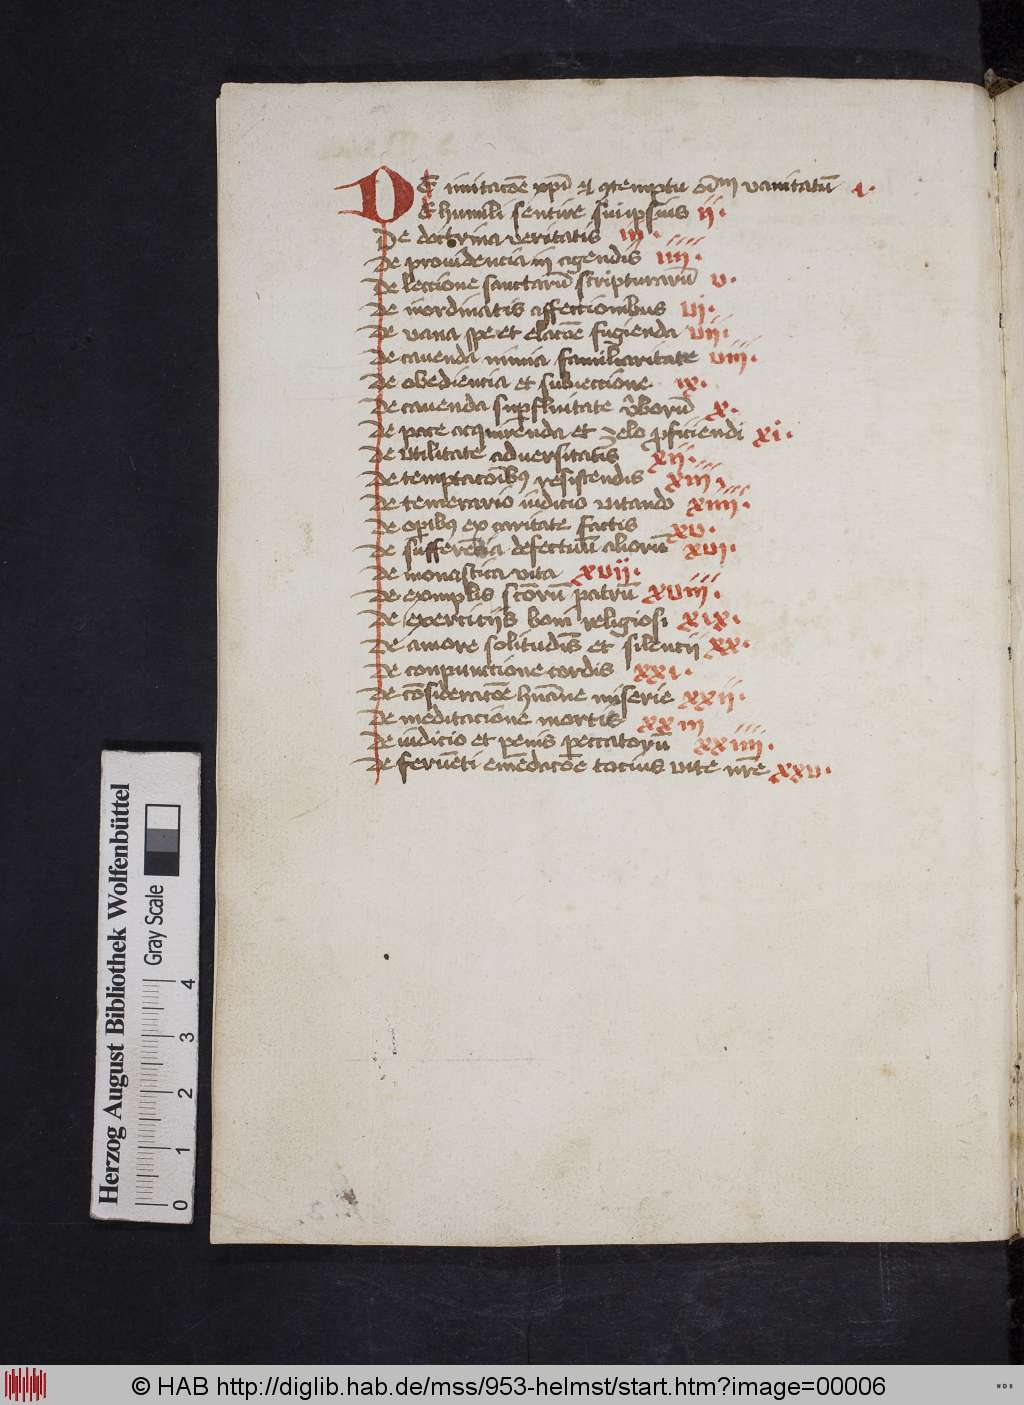 DE imitacōe xp̄i et ꝯtemptu oīm vanitatū i.
De humili sentire sui ipsius ii.
De doctrina veritatis iii.
De prouidencia in agendis iiii.
De leccione sanctarū scripturarū v.
De inordinatis affectionibus vi.
De vana spe et elacōe fugienda vii.
De cauenda nimia familiaritate viii.
De obediencia et subieccione ix.
De cauenda suꝑfluitate v̾borū x.
De pace acquirenda et zelo ꝓficiendi xi.
De vtilitate aduersitatis xii.
De temptacōibꝫ resistendis xiii.
De temerario iudicio vitando xiiii.
De opibꝫ ex caritate factis xv.
De sufferētia defectuū aliorū xvi.
De monastica vita xvii.
De exemplis scōrū patrū xviii.
De exercitijs boni religiosi xix.
De amore solitudīs et silencij xx.
De conpunctione cordis xxi.
De cōsideracōe hūane miserie xxii.
De meditacione mortis xxiii
De iudicio et penis peccatorū xxiiii.
De feruēti emēdacōe tocius vite nr̄e xxv.
Herzog August Bibliothek Wolfenbüttel
Gray Scale
0 1 2 3 4
© HAB http://diglib.hab.de/mss/953-helmst/start.htm?image=00006